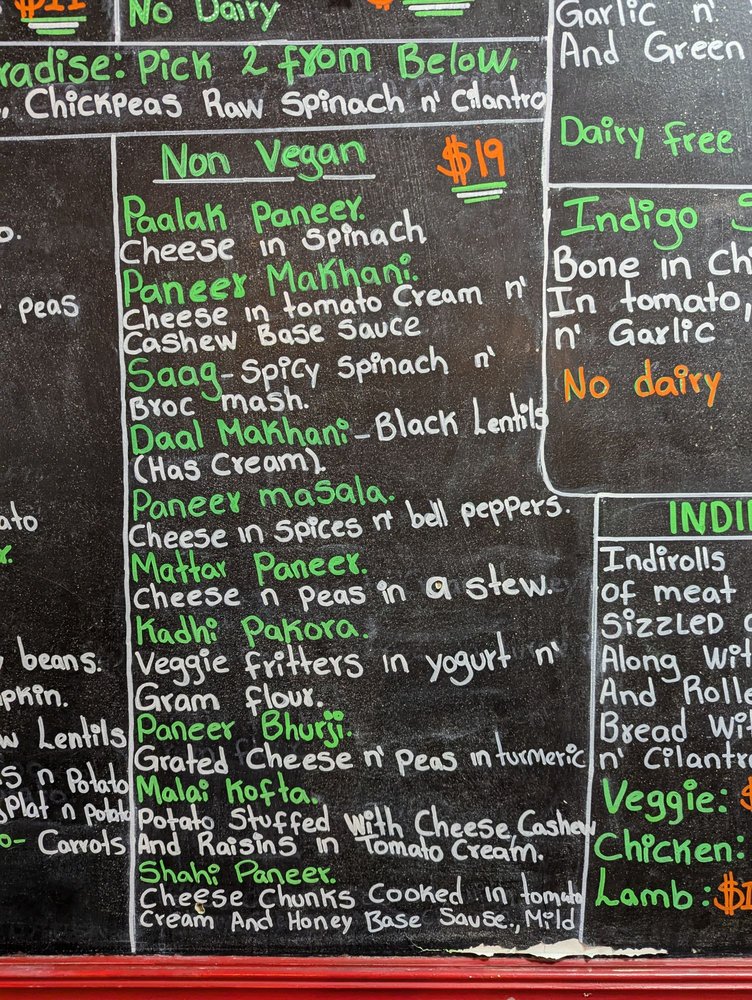 $11
No Dairy
radise: Pick 2 from Below.
, Chickpeas Raw Spinach n' Cilantro
Non Vegan $19
Paalak Paneer.
Cheese in Spinach
Paneer Makhani.
Cheese in tomato Cream n'
Cashew Base Sauce
Saag-Spicy Spinach n'
Broc mash.
Daal Makhani-Black Lentils
(Has Cream).
Paneer masala.
Cheese in spices n' bell peppers.
Mattar Paneer.
Cheese n peas in a stew.
Kadhi Pakora.
Veggie fritters in yogurt n'
Gram flour.
Paneer Bhurji.
Grated Cheese n' Peas in turmeric
Malai Kofta.
Potato Stuffed With Cheese, Cashew
And Raisins in Tomato Cream.
Shahi Paneer.
Cheese Chunks Cooked in tomato
Cream And Honey Base Sause., Mild
peas
beans.
pkin.
w Lentils
s n Potato
gplat n potato
o- Carrots
Garlic n'
And Green
Dairy free
Indigo
Bone in Chi
In tomato,
n' Garlic
No dairy
INDI
Indirolls
of meat
Sizzled
Along Wit
And Rolle
Bread Wit
n' Cilantro
Veggie: $
Chicken:
Lamb: $1